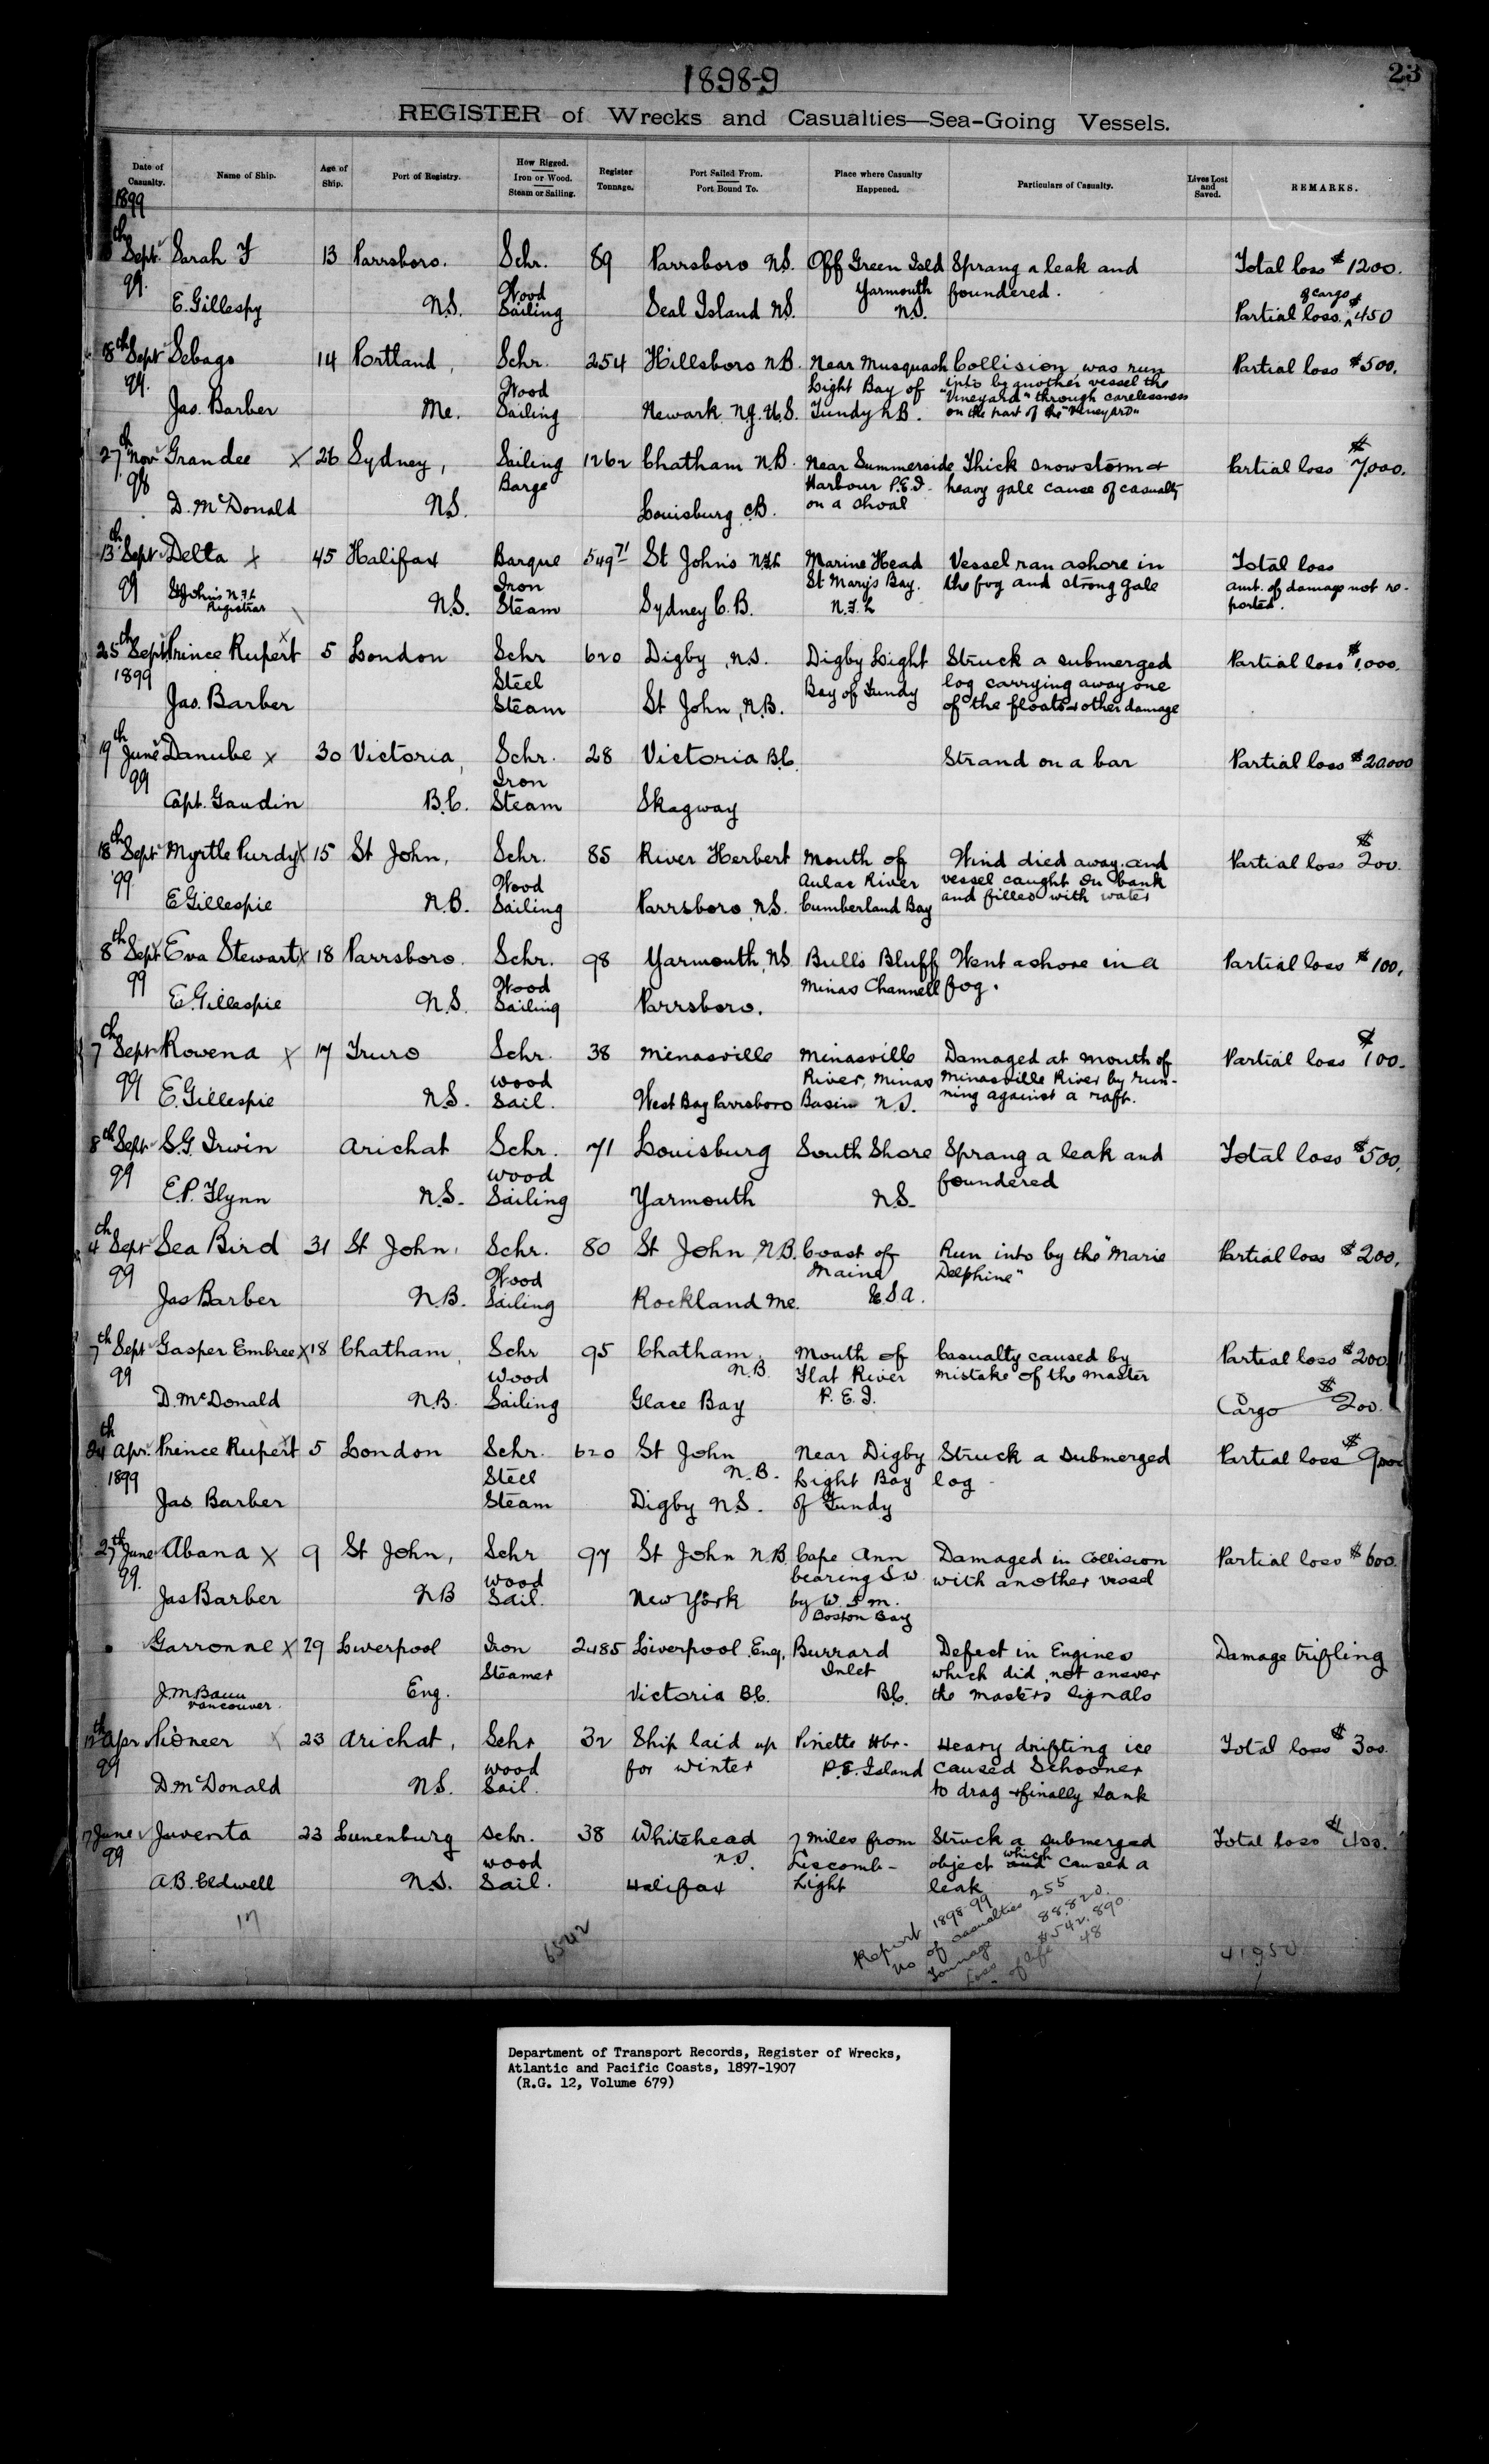 1898-9
23
REGISTER of Wrecks and Casualties—Sea-Going Vessels.
Date of Casualty. Name of Ship. Age of Ship. Port of Registry. How Rigged. Iron or Wood. Steam or Sailing. Register Tonnage. Port Sailed From. Port Bound To. Place where Casualty Happened. Particulars of Casualty. Lives Lost and Saved. REMARKS.
1899
th
Sept. Sarah F 13 Parrsboro. Schr. 89 Parrsboro N.S. Off Green Isld Sprang a leak and Total loss $1200.
99. Wood Yarmouth foundered. of cargo
E. Gillespy N.S. Sailing Seal Island N.S. N.S. Partial loss ^ $450
18th Sept Sebago 14 Portland, Schr. 254 Hillsboro N.B. Near Musquash Collision, was run Partial loss $500.
99. Wood Light Bay of into by another vessel the
"Vineyard" through carelessness
Jas. Barber Me. Sailing Newark N.J. U.S. Fundy N.B. on the part of the "Vineyard"
27th Nov Grandee X 26 Sydney, Sailing 1262 Chatham N.B. Near Summerside Thick snowstorm & Partial loss $7,000.
98 Barge Harbour P.E.I. heavy gale cause of casualty
D. McDonald N.S. Louisburg C.B. on a shoal
13th Sept Delta X 45 Halifax Barque 549 71 St John's Nfld Marine Head Vessel ran ashore in Total loss
99 St John's N.F.L. Iron St Mary's Bay. the fog and strong gale amt. of damage not re-
Registrar N.S. Steam Sydney C.B. N.F.L ported.
25th Sept Prince Rupert X 5 London Schr 620 Digby, N.S. Digby Light Struck a submerged Partial loss $1,000.
1899 Steel Bay of Fundy log carrying away one
Jas. Barber Steam St John, N.B. of the floats & other damage
19th June Danube X 30 Victoria, Schr. 28 Victoria B.C. Strand on a bar Partial loss $20000
99 Iron
Capt. Gaudin B.C. Steam Skagway
18th Sept Myrtle Purdy X 15 St John, Schr. 85 River Herbert Mouth of Wind died away and Partial loss $200.
99. Wood Aulac River vessel caught on bank
E Gillespie N.B. Sailing Parrsboro, N.S. Cumberland Bay and filled with water
8th Sept Eva Stewart X 18 Parrsboro. Schr. 98 Yarmouth, N.S Bulls Bluff Went ashore in a Partial loss $100.
99 Wood Minas Channell fog.
E. Gillespie N.S. Sailing Parrsboro.
7th Sept Rowena X 17 Truro Schr. 38 Minasville Minasville Damaged at mouth of Partial loss $100.
99 wood River, Minas Minasville River by run-
E. Gillespie N.S. Sail. West Bay Parrsboro Basin N.S. ning against a raft.
8th Sept S.G. Irwin Arichat Schr. 71 Louisburg South Shore Sprang a leak and Total loss $500.
99 wood foundered
E.P. Flynn N.S. Sailing Yarmouth N.S.
4th Sept Sea Bird 31 St John, Schr. 80 St John, N.B. Coast of Run into by the "Marie Partial loss $200.
99 Wood Maine Delphine"
Jas Barber N.B. Sailing Rockland Me. U.S.A.
7th Sept Gasper Embree X 18 Chatham, Schr 95 Chatham, Mouth of Casualty caused by Partial loss $200
99 Wood N.B. Flat River mistake of the master
D. McDonald N.B. Sailing Glace Bay P.E.I. Cargo $200.
24th Apr. Prince Rupert 5 London Schr. 620 St John Near Digby Struck a submerged Partial loss $9,000
1899 Steel N.B. Light Bay log
Jas Barber Steam Digby N.S. of Fundy
27th June Abana X 9 St John, Schr 97 St John N.B. Cape Ann Damaged in Collision Partial loss $600.
99. wood bearing S.W with another vessel
Jas Barber N.B Sail. New York by W. 5 m.
Boston Bay
Garronne X 29 Liverpool Iron 2485 Liverpool Eng. Burrard Defect in Engines Damage trifling
Steamer Inlet which did not answer
J.M. Eng. Victoria B.C. B.C. the masters signals
Vancouver.
12th Apr Pioneer X 23 Arichat, Schr 32 Ship laid up Pinette Hbr. Heavy drifting ice Total loss $300.
99 wood for winter P.E. Island caused Schooner
D. McDonald N.S. Sail. to drag & finally sank
17 June Juventa 23 Lunenburg Schr. 38 Whitehead 7 miles from Struck a submerged Total loss
99 wood N.S. Liscomb- object which caused a
A.B. Cldwell N.S. Sail. Halifax Light leak
17
6542
Report 1898-99
No of casualties 255
Tonnage 88.820.
Loss $542.890.
" of life 48
41950
Department of Transport Records, Register of Wrecks,
Atlantic and Pacific Coasts, 1897-1907
(R.G. 12, Volume 679)